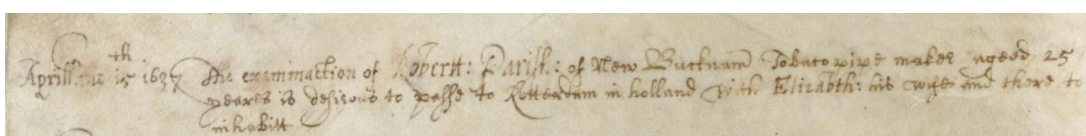 Aprill the 15th 1637 The examinaction of Robertt: Parish: of New Bucknam Tobacopipe maker ageed 25
yeares is desirous to passe to Rotterdam in holland with Elizabth: his wife and there to
inhabitt